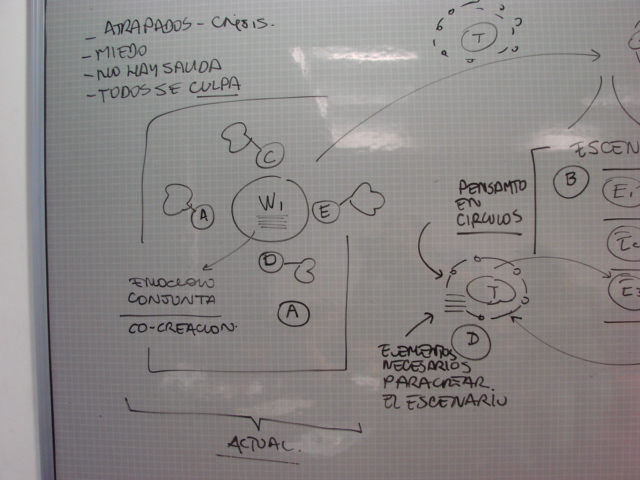 - ATRAPADOS - CRISIS.
- MIEDO
- NO HAY SALIDA
- TODOS SE CULPA
T
C
A
W1
E
D
EMOCION
CONJUNTA
CO-CREACION.
A
ACTUAL.
PENSAMTO
EN
CIRCULOS
I
D
ELEMENTOS
NECESARIOS
PARA CREAR.
EL ESCENARIO
B
ESCEN
E1
E2
E3